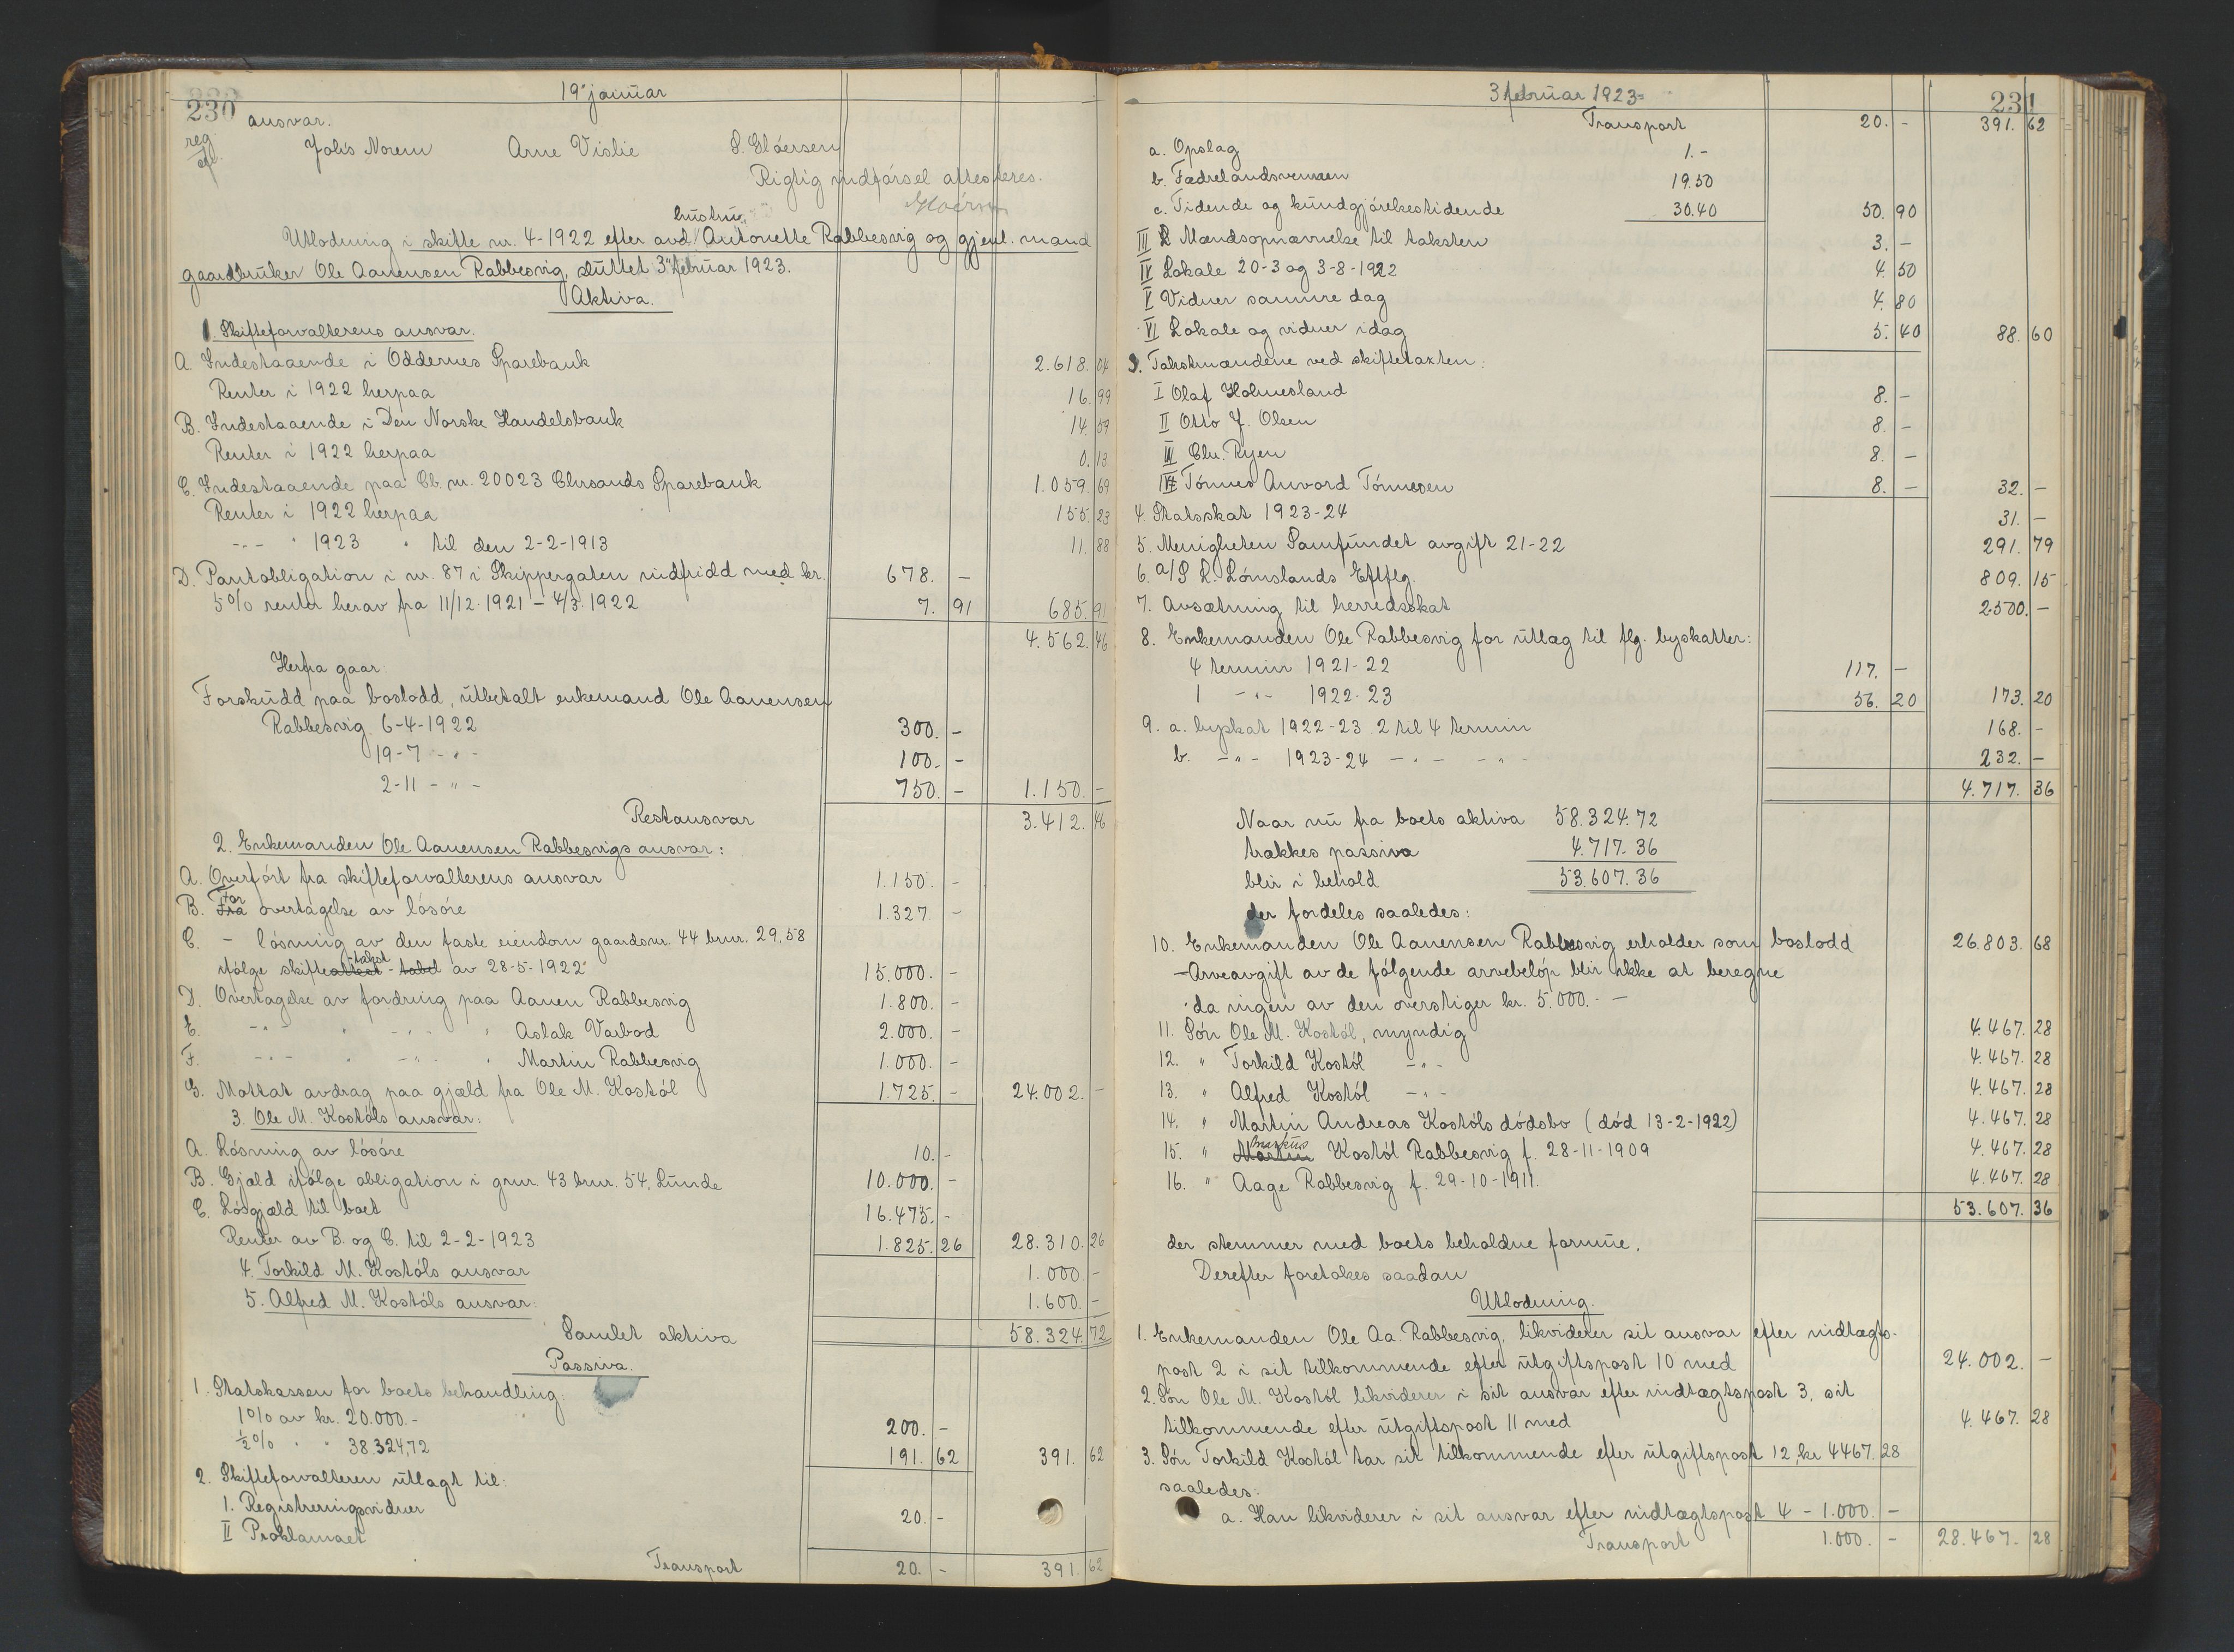 230
19' januar
ansvar.
reg.
Johs Norem Arne Vislie S. Gløersen
Rigtig indførsel attesteres.
Utlodning i skifte nr. 4-1922 efter avd. hustru Antonette Rabbesvig og gjenl. mand
gaardbruker Ole Aanensen Rabbesvig, sluttet 3' februar 1923.
Aktiva.
1. Skifteforvalterens ansvar.
A. Indestaaende i Oddernes Sparebank 2.618. 04
Renter i 1922 herpaa 16. 99
B. Indestaaende i Den Norske Handelsbank 14. 59
Renter i 1922 herpaa 0. 13
C. Indestaaende paa Cb. nr. 20023 Chrsands Sparebank 1.059. 69
Renter i 1922 herpaa 155. 23
-"- " 1923 " til den 2-2-1913 11. 88
D. Pantobligation i nr. 87 i Skippergaten indfridd med kr. 678. -
5% renter herav fra 11/12. 1921 - 4/3. 1922 7. 91 685. 91
4.562. 46
Herfra gaar:
Forskudd paa boslodd, utbetalt enkemand Ole Aanensen
Rabbesvig 6-4-1922 300. -
19-7 -"- 100. -
2-11 -"- 750. - 1.150. -
Restansvar 3.412. 46
2. Enkemanden Ole Aanensen Rabbesvigs ansvar:
A. Overført fra skifteforvalterens ansvar 1.150. -
B. Fra For overtagelse av løsøre 1.327 -
C. - løsning av den faste eiendom gaardsnr. 44 brnr. 29,58
ifølge skifteattest-takst - tabel av 28-5-1922 15.000. -
D. Overtagelse av fordring paa Aanen Rabbesvig 1.800. -
E. -"- " -"- " Aslak Vaibod 2.000. -
F. -"- " -"- " Martin Rabbesvig 1.000. -
G. Mottat avdrag paa gjæld fra Ole M. Kostøl 1.725. - 24.002. -
3. Ole M. Kostøls ansvar:
A. Løsning av løsøre 10. -
B. Gjæld ifølge obligation i gnr. 43 bnr. 54, Lunde 10.000. -
C. Løsgjæld til boet 16.475. -
Renter av B. og C. til 2-2-1923 1.825. 26 28.310. 26
4. Torkild M. Kostøls ansvar 1.000 -
5. Alfred M. Kostøls ansvar: 1.600. -
Samlet aktiva 58.324. 72
Passiva.
1. Statskassen for boets behandling:
1% av kr. 20.000.- 200. -
½% " " 38.324,72 191. 62 391. 62
2. Skifteforvalteren utlagt til:
1. Registreringsvidner 20. -
II Proklamaet
Transport 20. - 391. 62
3 februar 1923=
231
Transport 20. - 391. 62
a. Opslag 1.-
b. Fædrelandsvennen 19.50
c. Tidende og kundgjørelsestidende 30.40 50. 90
III Mændsopnævnelse til taksten 3. -
IV Lokale 20-3 og 3-8-1922 4. 50
V Vidner samme dag 4. 80
VI Lokale og vidner idag 5. 40 88. 60
3. Takstmændene ved skiftetaxten:
I Olaf Holmesland 8. -
II Otto J. Olsen 8. -
III Chr. Ryen 8. -
IV Tønnes Anvord Tønnesen 8. - 32. -
4. Statsskat 1923-24 31. -
5. Menigheten Samfundet avgift 21-22 291. 79
6. A/S L. Lømslands Eftflg. 809. 15
7. Avsætning til herredsskat 2500. -
8. Enkemanden Ole Rabbesvig for utlæg til flg. byskatter:
4 termin 1921-22 117. -
1 -"- 1922-23 56. 20 173. 20
9. a. byskat 1922-23 2 til 4 termin 168. -
b. -"- 1923-24 -"- -"- 232. -
4.717. 36
Naar nu fra boets aktiva 58.324.72
trækkes passiva 4.717.36
blir i behold 53.607.36
der fordeles saaledes:
10. Enkemanden Ole Aanensen Rabbesvig erholder som boslodd 26.803. 68
-Arveavgift av de følgende arvebeløp blir ikke at beregne
da ingen av dem overstiger kr. 5.000.- -
11. Søn Ole M. Kostøl, myndig 4.467. 28
12. " Torkild Kostøl -"- 4.467. 28
13. " Alfred Kostøl -"- 4.467. 28
14. " Martin Andreas Kostøls dødsbo (død 13-2-1922) 4.467. 28
15. " Martin Markus Kostøl Rabbesvig f. 28-11-1909 4.467. 28
16. " Aage Rabbesvig f. 29-10-1911. 4.467. 28
53.607. 36
der stemmer med boets beholdne formue.
Derefter foretokes saadan
Utlodning.
1. Enkemanden Ole Aa. Rabbesvig, likviderer sit ansvar efter indtægts-
post 2 i sit tilkommende efter utgiftspost 10 med 24.002. -
2. Søn Ole M. Kostøl likviderer i sit ansvar efter indtægtspost 3, sit
tilkommende efter utgiftspost 11 med 4.467. 28
3. Søn Torkild Kostøl har sit tilkommende efter utgiftspost 12, kr 4467. 28
saaledes:
a. Han likviderer i sit ansvar efter indtægtspost 4 - 1.000. -
Transport 1.000. - 28.467. 28